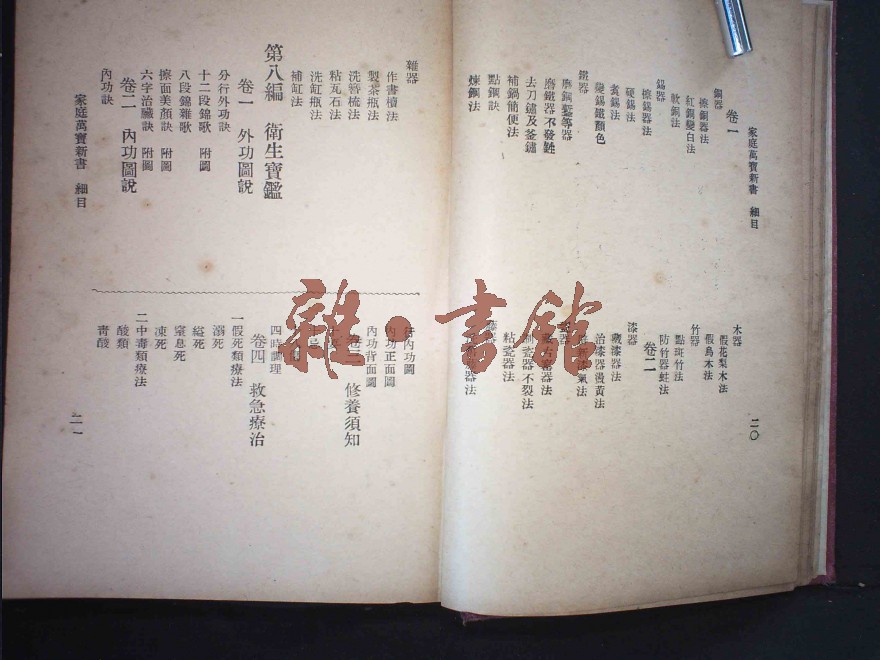 家庭萬寶新書 細目
二〇
卷一
銅器
擦銅器法
紅銅變白法
軟銅法
錫器
擦錫器法
硬錫法
煑錫法
變錫鐵顏色
鐵器
磨鋼鏨等器
磨鐵器不發銼
去刀鏽及釜鏽
補鍋簡便法
點鋼訣
煉鋼法
木器
假花梨木法
假烏木法
竹器
點斑竹法
防竹器蛀法
卷二
漆器
藏漆器法
治漆器燙黃法
漆氣法
窰器法
瓷器不裂法
粘瓷器法
器法
雜器
作書櫝法
製茶瓶法
洗簪梳法
粘瓦石法
洗缸瓶法
補缸法
第八編 衞生寶鑑
卷一 外功圖說
分行外功訣
十二段錦歌 附圖
八段錦雜歌
擦面美顏訣 附圖
六字治臟訣 附圖
卷二 內功圖說
內功訣
行內功圖
內功正面圖
內功背面圖
卷三 修養須知
四時調理
卷四 救急療治
一假死類療法
溺死
縊死
窒息死
凍死
二中毒類療法
酸類
靑酸
家庭萬寶新書 細目
二一
雜·書館